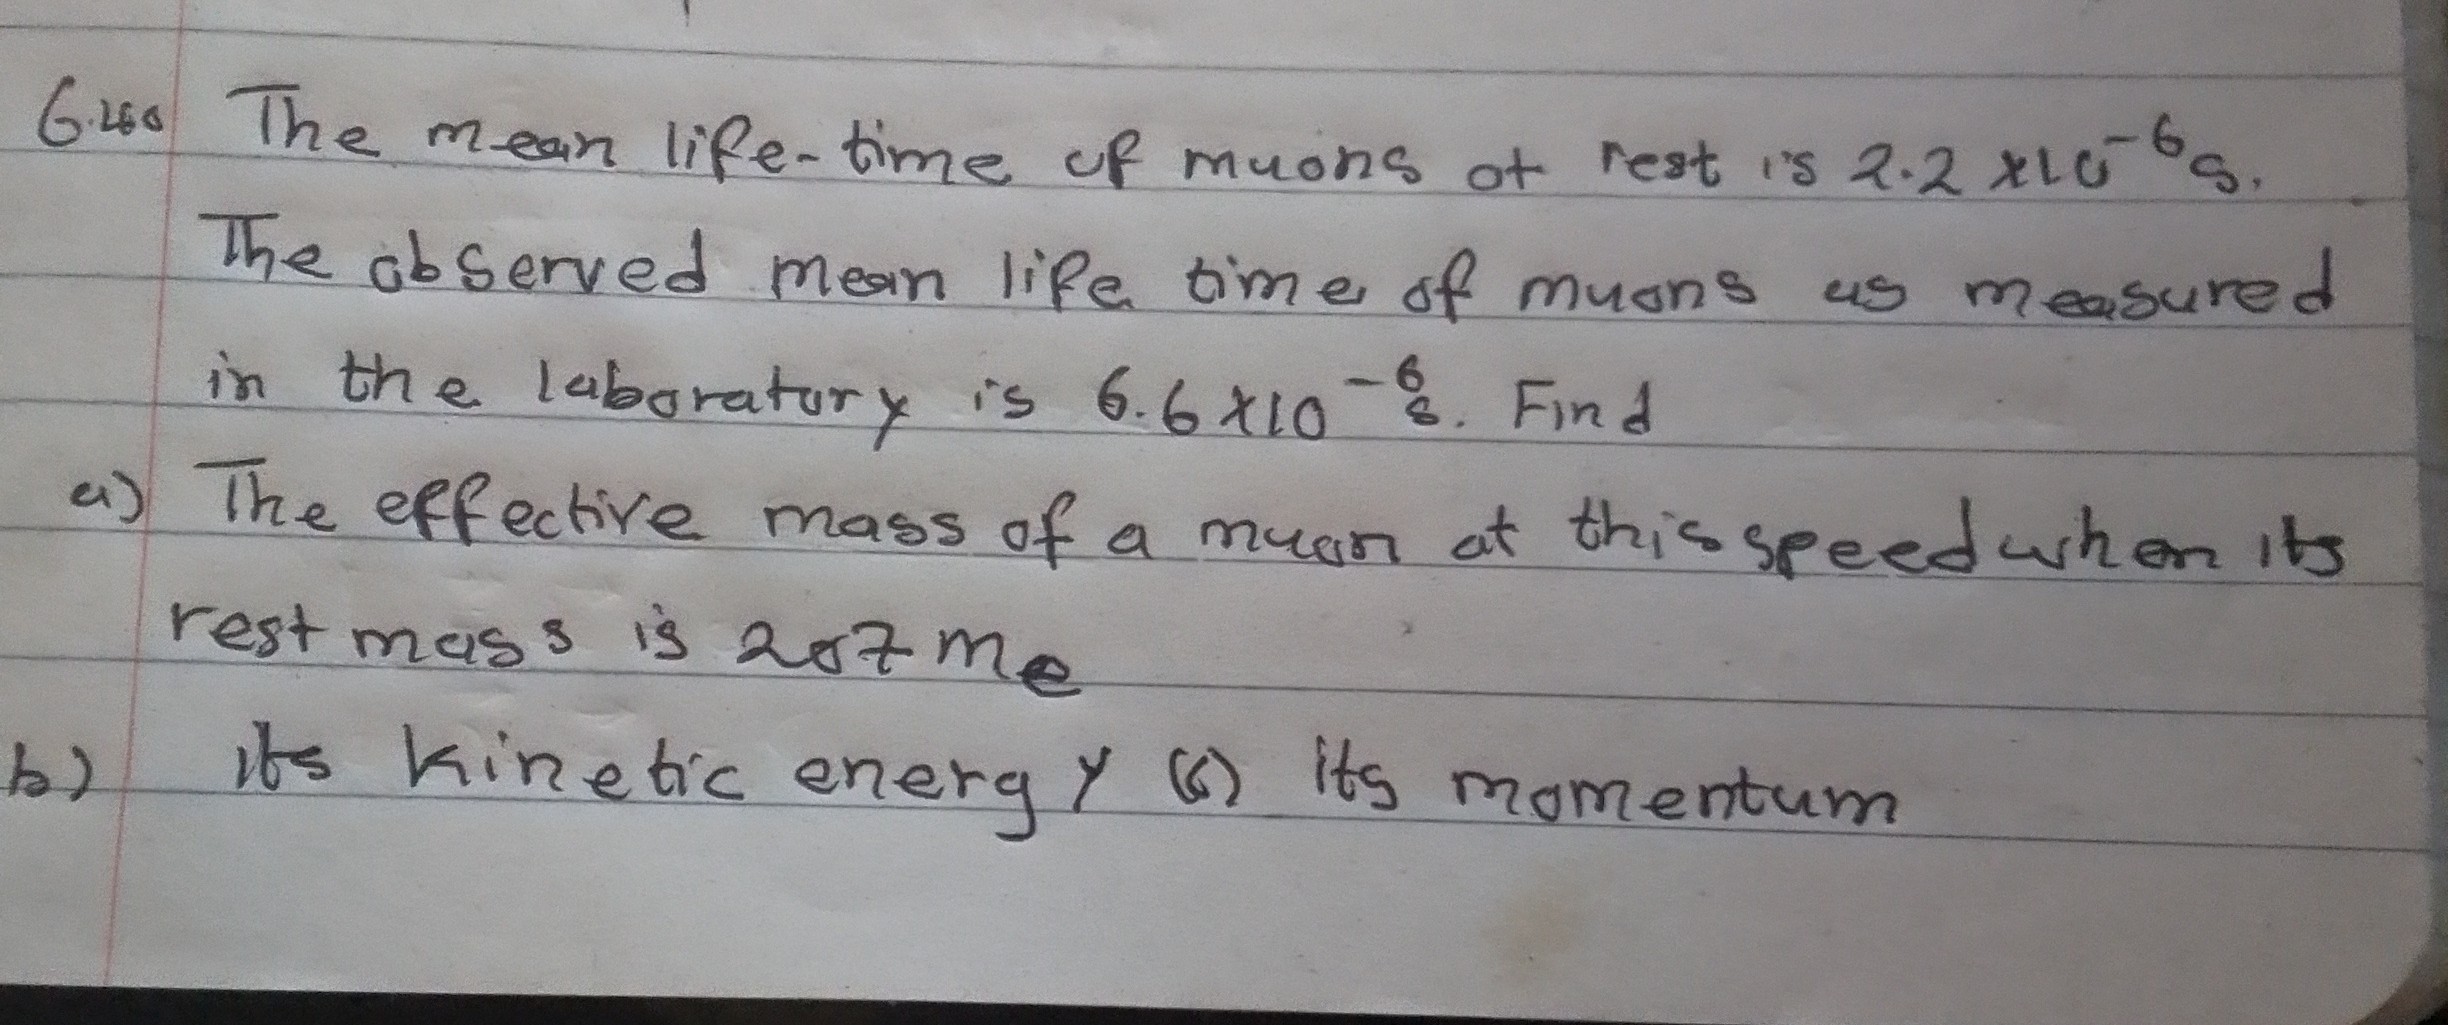 The mean life-time of muons at rest is 2.2 x10⁻⁶s.
The observed mean life time of muons as measured
in the laboratory is 6.6 x10⁻⁶s. Find
a) The effective mass of a muon at this speed when its
rest mass is 207 me
b) its kinetic energy (c) its momentum